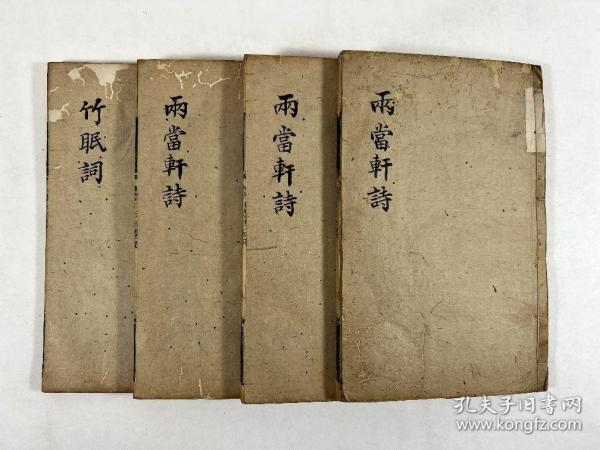 兩當軒詩
兩當軒詩
兩當軒詩
竹眠詞
孔夫子旧书网
www.kongfz.com